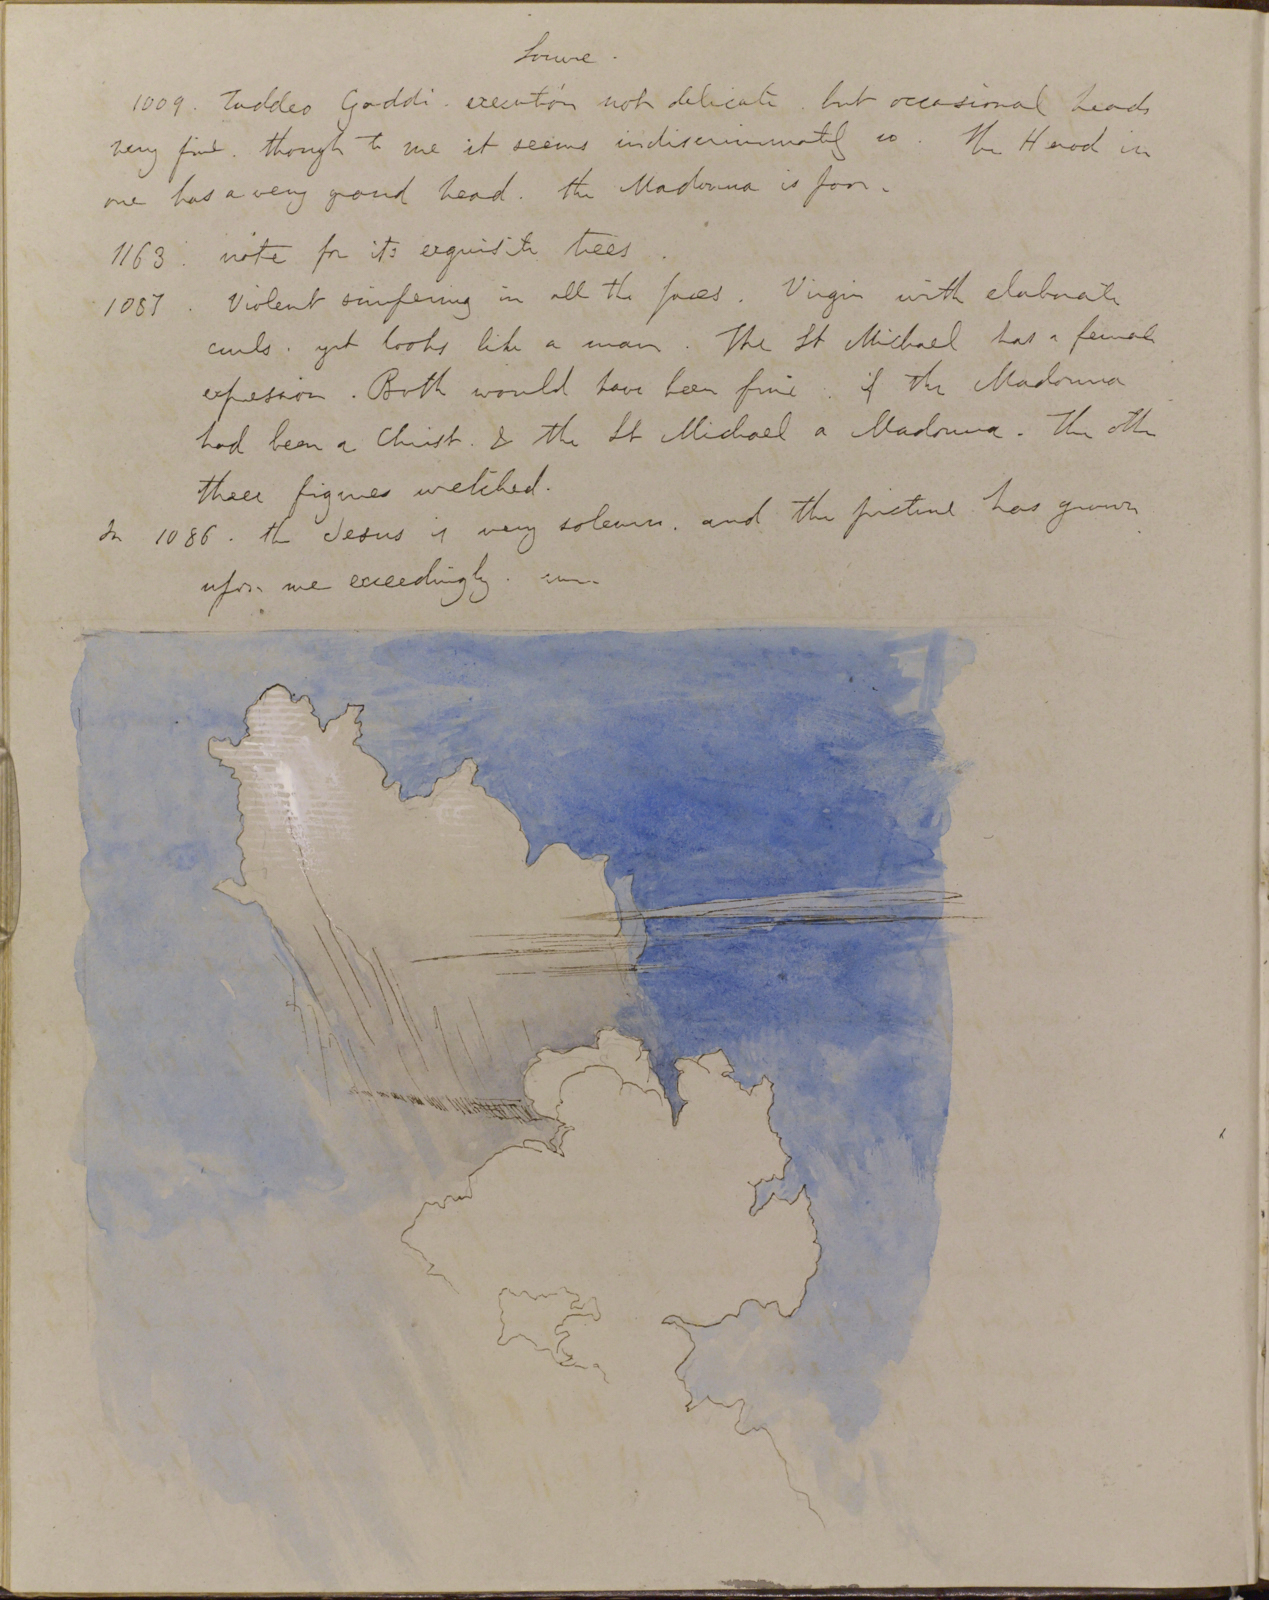 Louvre.
1009. Taddeo Gaddi. execution not delicate. but occasional heads
very fine. though to me it seems indiscriminately so. The Herod in
one has a very grand head. the Madonna is poor.
1163. note for its exquisite trees.
1087. Violent simpering in all the faces. Virgin with elaborate
curls. yet looks like a man. The St Michael has a female
expression. Both would have been fine. if the Madonna
had been a Christ. & the St Michael a Madonna. The othe
three figures wretched.
In 1086. the Jesus is very solemn. and the picture has grown
upon me exceedingly.